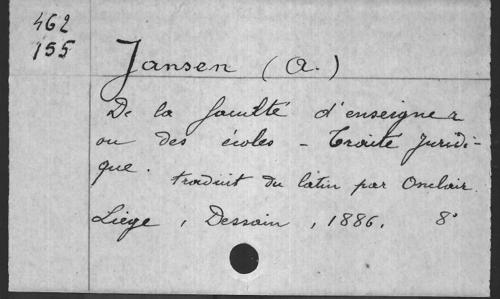 462
155
Jansen (A.)
De la faculté d'enseigner
ou des écoles - Traité Juridi-
que. traduit du latin par Onclair
Liège, Dessain, 1886. 8°